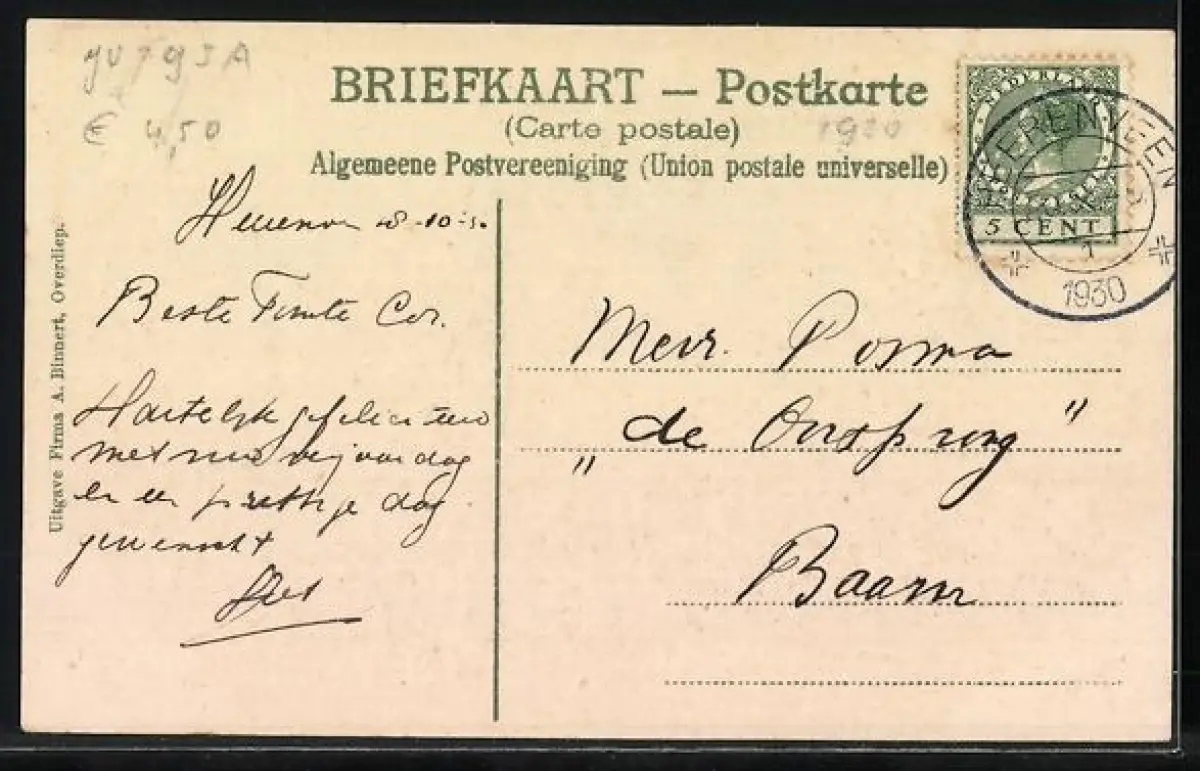 € 4,50
1930
BRIEFKAART — Postkarte
(Carte postale)
Algemeene Postvereeniging (Union postale universelle)
NEDERLAND
5 CENT
HEERENVEEN
1930
Uitgave Firma A. Binnert, Overdiep.
8-10-30
Beste Tante Cor.
Hartelijk gefeliciteerd
met uw verjaardag
en een prettige dag
gewenscht
Mevr. Posma
„de Oorsprong"
Baarn